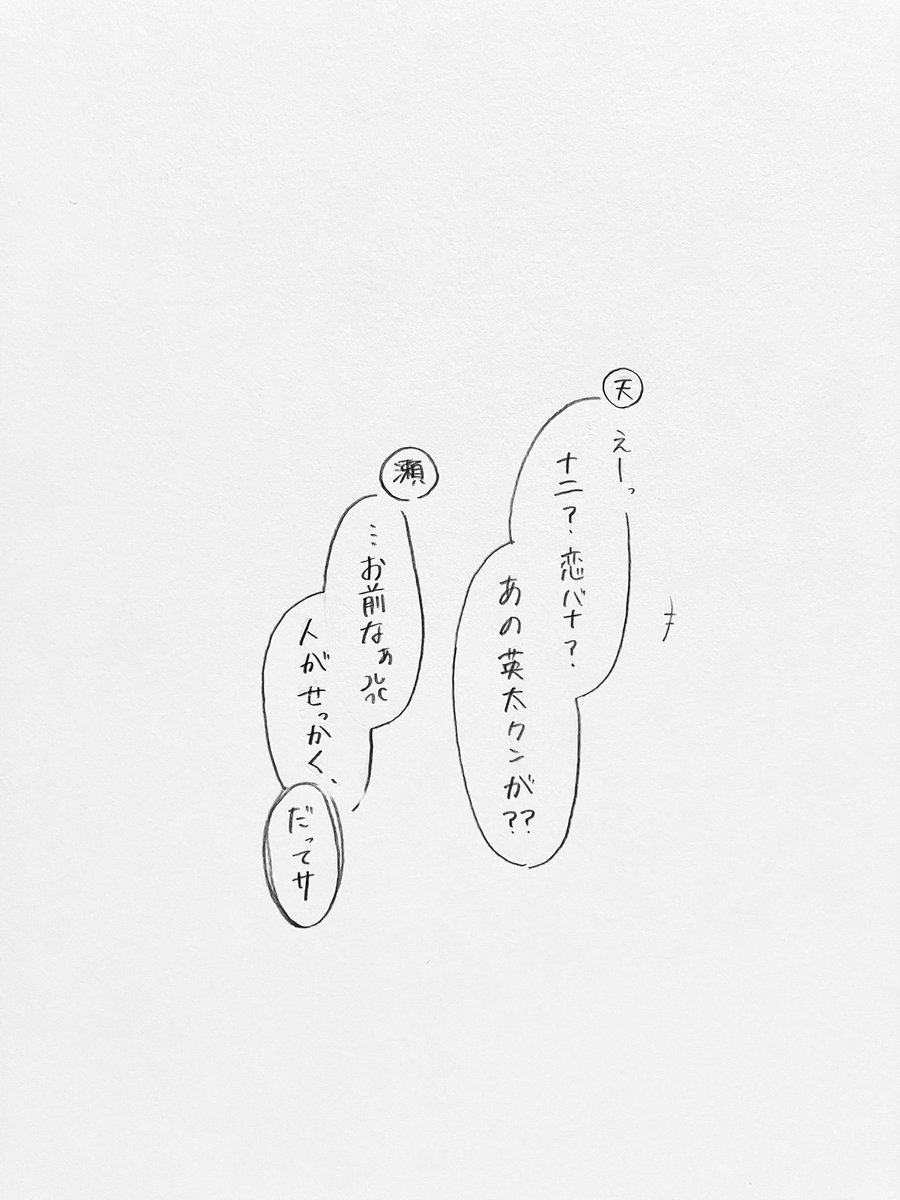 天
えーっ
ナニ?恋バナ?
あの英太クンが??
瀬
…お前なぁ
人がせっかく、
だってサ